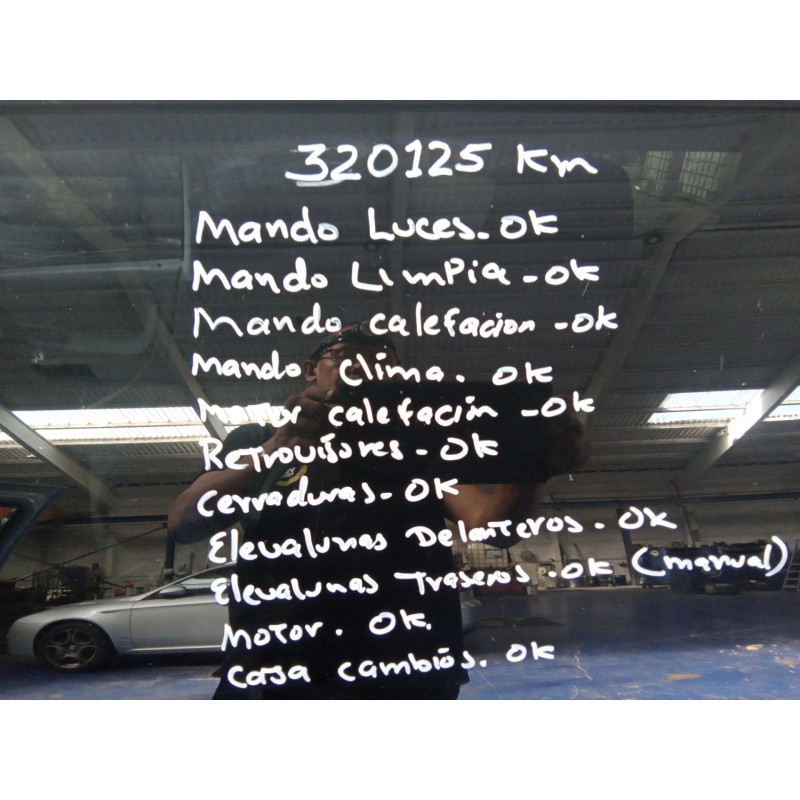 320125 Km
Mando Luces. OK
Mando Limpia - OK
Mando calefacion - OK
Mando Clima. OK
Motor calefación - OK
Retrovisores - OK
Cerraduras - OK
Elevalunas Delanteros. OK
Elevalunas Traseros. OK (manual)
Motor. OK.
Caja cambios. OK